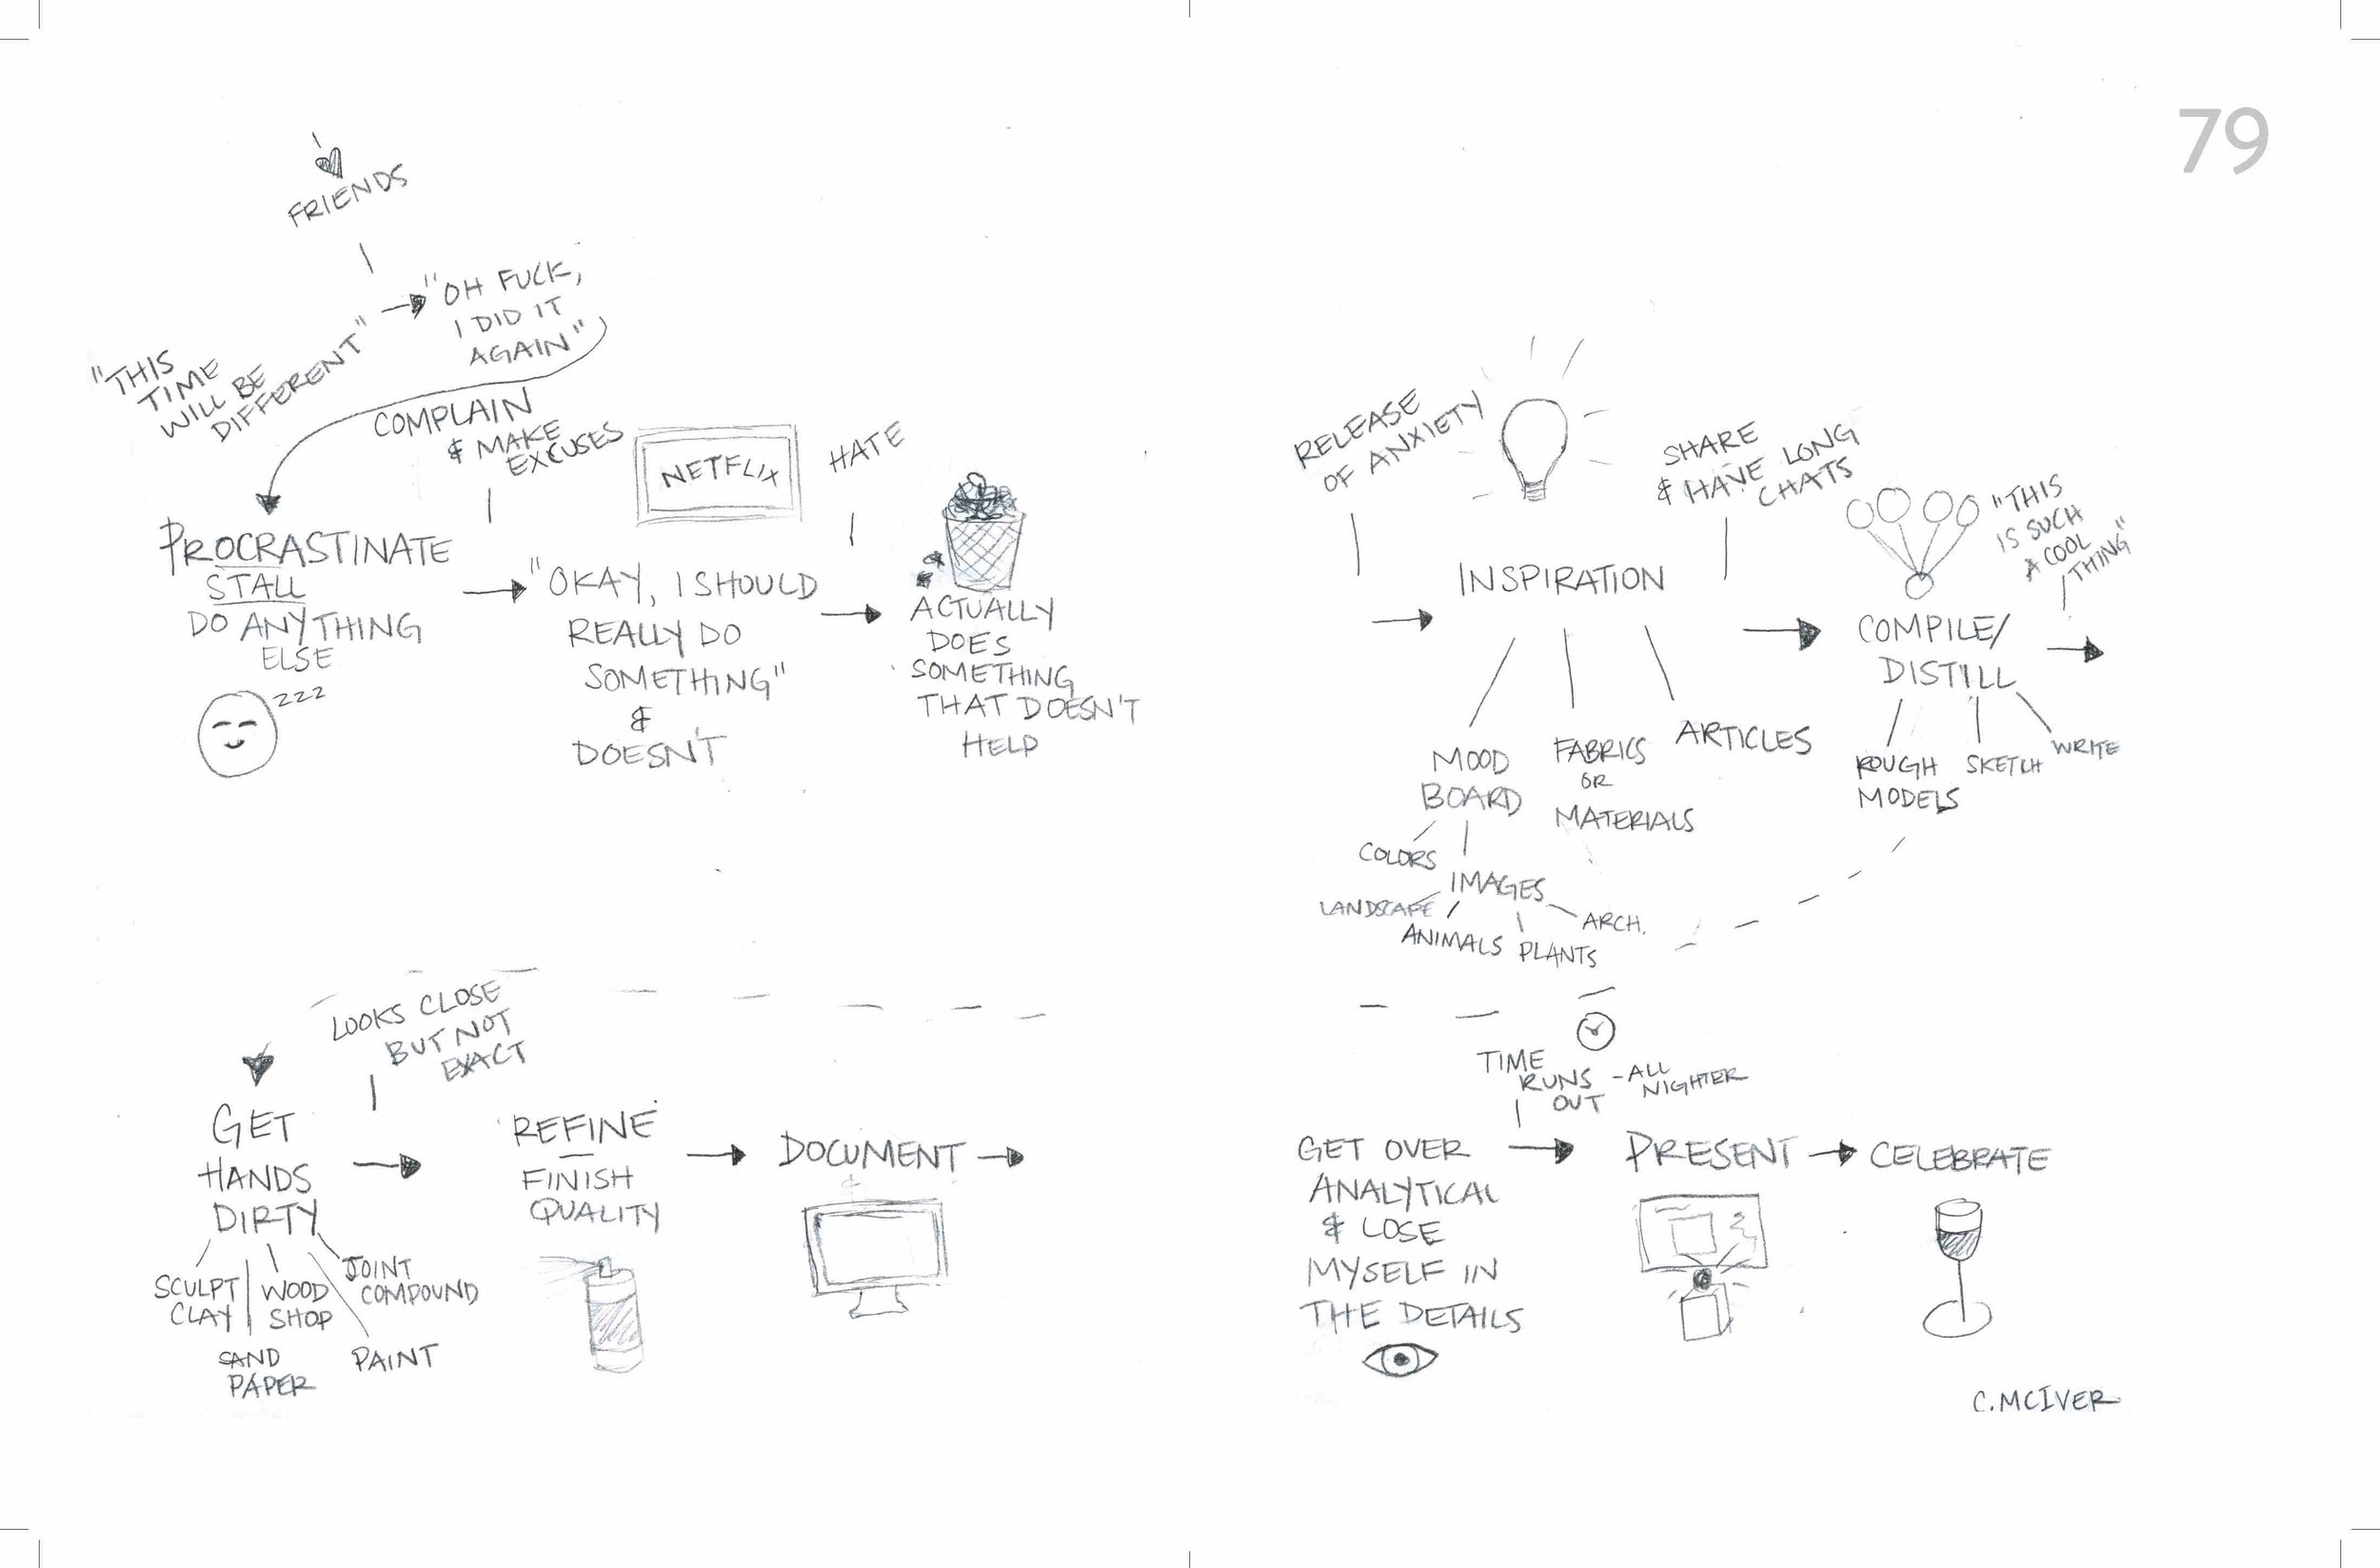 79
FRIENDS
"THIS
TIME
WILL BE
DIFFERENT"
"OH FUCK,
I DID IT
AGAIN"
COMPLAIN
& MAKE
EXCUSES
PROCRASTINATE
STALL
DO ANYTHING
ELSE
ZZZ
NETFLIX
"OKAY, I SHOULD
REALLY DO
SOMETHING"
&
DOESN'T
HATE
ACTUALLY
DOES
SOMETHING
THAT DOESN'T
HELP
RELEASE
OF ANXIETY
INSPIRATION
MOOD
BOARD
COLORS
IMAGES
LANDSCAPE
ANIMALS
PLANTS
ARCH.
FABRICS
OR
MATERIALS
ARTICLES
SHARE
& HAVE LONG
CHATS
"THIS
IS SUCH
A COOL
THING"
COMPILE/
DISTILL
ROUGH
MODELS
SKETCH
WRITE
LOOKS CLOSE
BUT NOT
EXACT
GET
HANDS
DIRTY
SCULPT
CLAY
WOOD
SHOP
JOINT
COMPOUND
SAND
PAPER
PAINT
REFINE
FINISH
QUALITY
DOCUMENT
GET OVER
ANALYTICAL
& LOSE
MYSELF IN
THE DETAILS
TIME
RUNS
OUT
-ALL
NIGHTER
PRESENT
CELEBRATE
C.MCIVER